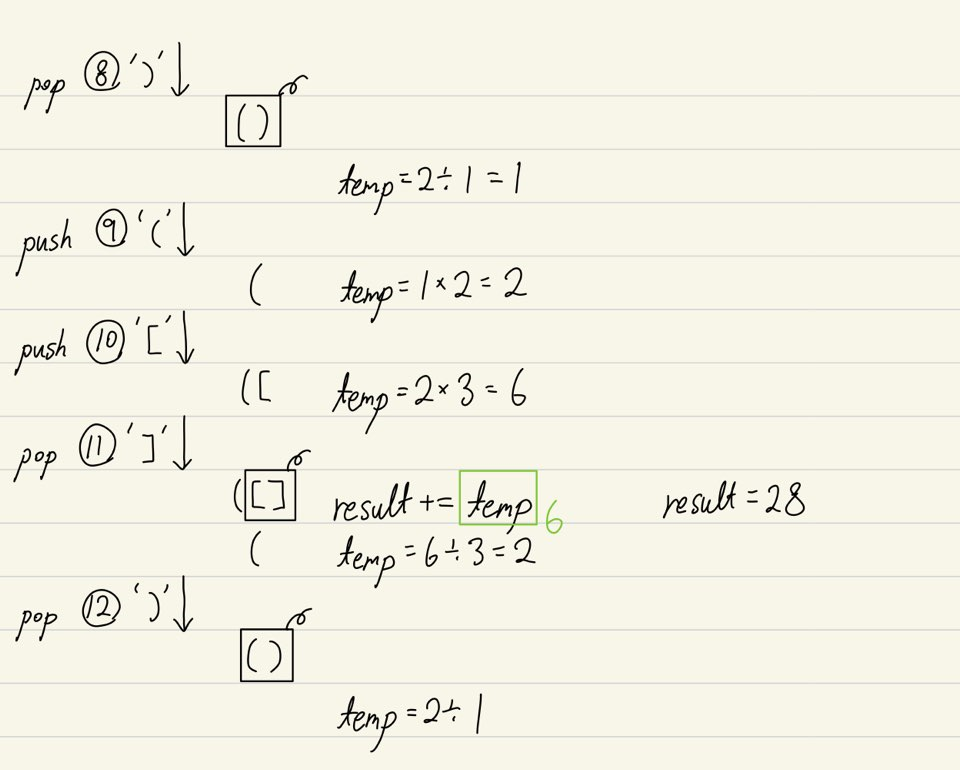 pop ⑧ ')' ↓
( )
temp = 2 ÷ 1 = 1
push ⑨ '(' ↓
( temp = 1 × 2 = 2
push ⑩ '[' ↓
( [ temp = 2 × 3 = 6
pop ⑪ ']' ↓
( [ ] result += temp 6 result = 28
( temp = 6 ÷ 3 = 2
pop ⑫ ')' ↓
( )
temp = 2 ÷ 1